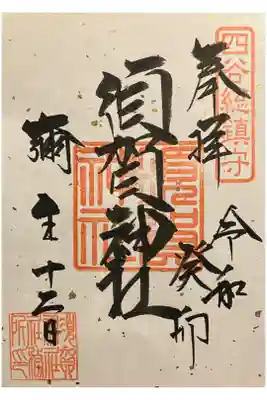 四谷總鎮守
奉拝
令和
癸卯
須賀神社
須賀神社
彌生十二日